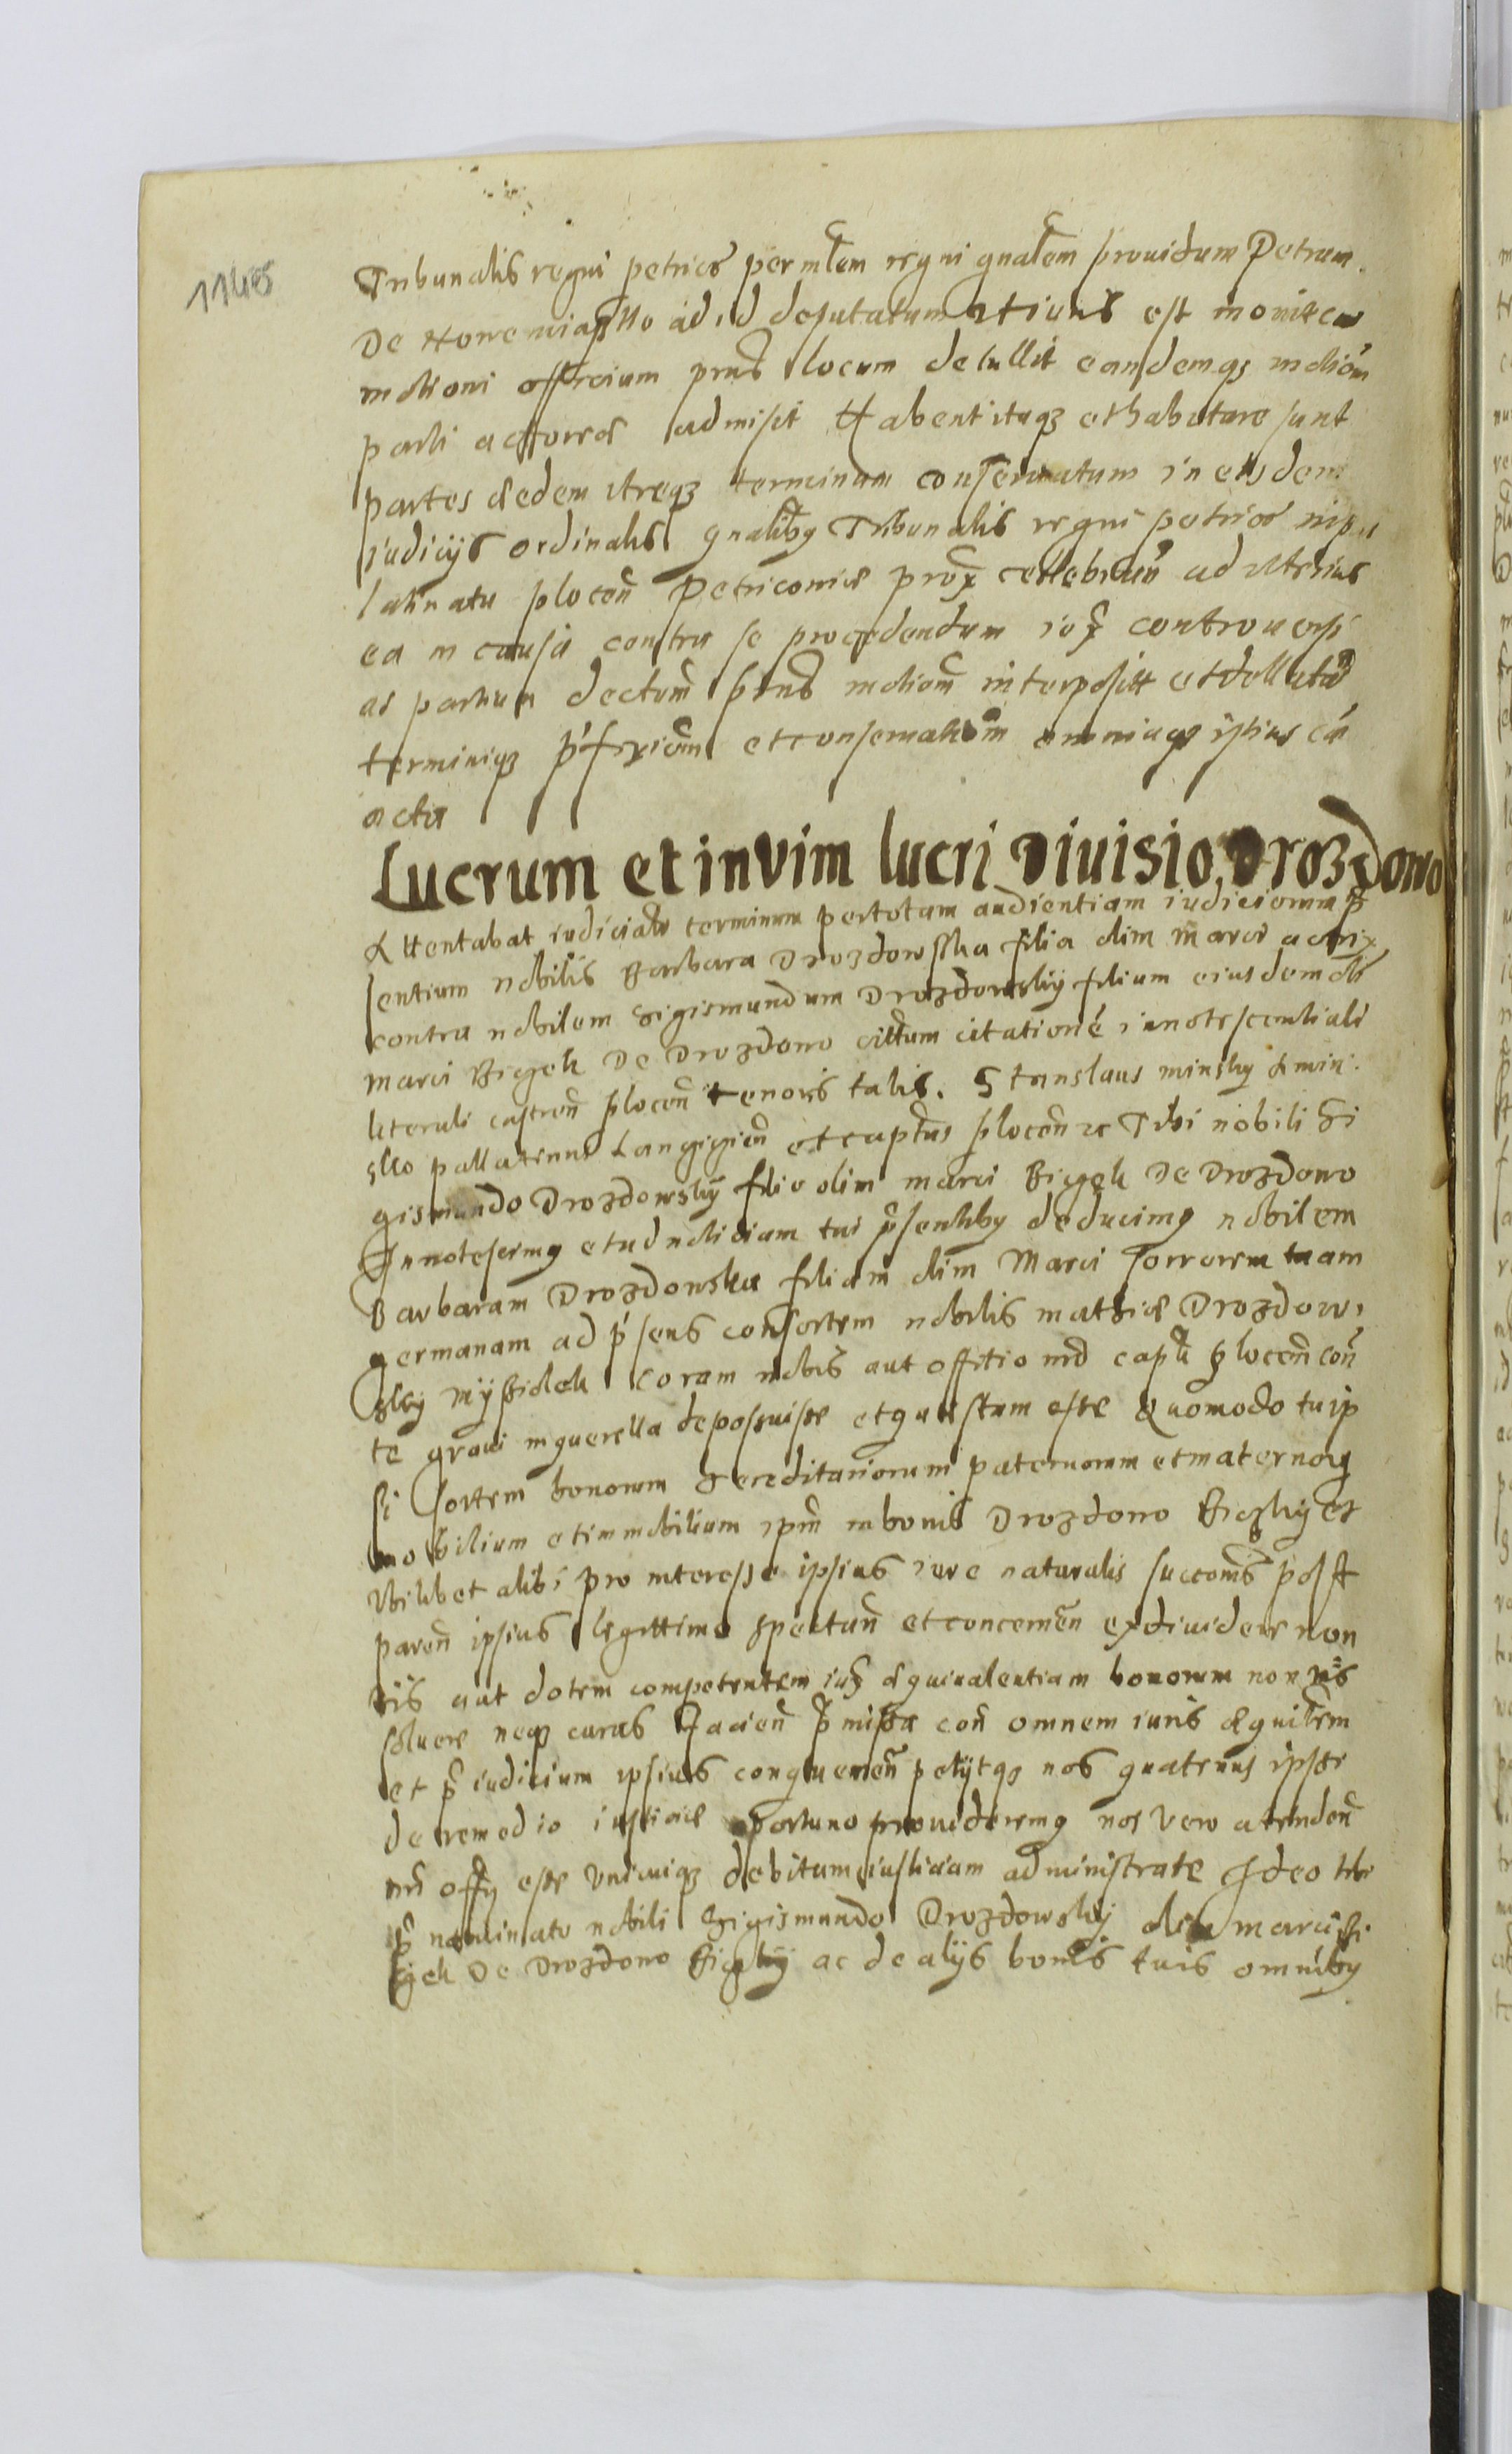 1148
Tribunalis regni petrico per mlem regni gnalem prouidum Petrum
De Nowemiasto ad id deputatum est
motioni officium pns locum detullit eandemqz motiom
parti actorea admisit Habent itaqz et habitare sunt
partes eedem utreqz terminum conseruatum in eisdem
iudicijs ordinalis gnalibq Tribunalis regni petrico in pa
latinatu plocen Petricouie prox cellebran ad ulterius
ea in causa contra se procedendum iux controuersi
as partium dectum pns motiom interposit et dellata
terminiqz pfixiom et conseruatiom omniaqz istius
acta
Lucrum et in vim lucri Diuisio. Drozdowo
Attentabat iudicialr terminum per totam audientiam iudiciorum p
sentium nobilis Barbara Drozdowska filia olim marci actrix
contra nobilem Sigismundum Drozdowsky filium eiusdem olim
marci Biegek De Drozdowo cittum citatione innotescentiali
literali castren plocen tenoris talis. Stanslaus minsky Dmini
sllo pallatinus Langigien et captus plocen zc Tibi nobili Si
gismundo Drozdowsky filio olim marci Biegek De Drozdowo
Innotescimq et ad noticiam tui psentibq deducimq nobilem
Barbaram Drozdowska filiam olim Marci sororem tuam
germanam ad psens consortem nobilis mathie Drozdow,
sky coram nobis aut offitio nro capli plocen con
te graui in querella deposuisse et questum esse Quomodo tu ip
si sortem bonorum hereditariorum paternorum et maternoq
mobilium et immobilium ipm in bonis Drozdowo Biegky et
Ubilibet alibi pro interesse ipsius iure naturalis succonis post
paren ipsius legittime spectan et concernen exdiuidere non
vis aut dotem competentem iux equiualentiam bonorum non vis
soluere neqz curas Facien pmissa con omnem iuris equitem
et p iudicium ipsius conqueren petijtqz nos quatenus ipse
de remedio iusticie oportuno prouideremq nos vero atenden
nri offy esse unicuiqz debitum iusticiam administrare Ideo tibi
p nominato nobili Sigismundo Drozdowsky olim marci Bi
gek De Drozdowo Biegky ac de alijs bonis tuis omnibq